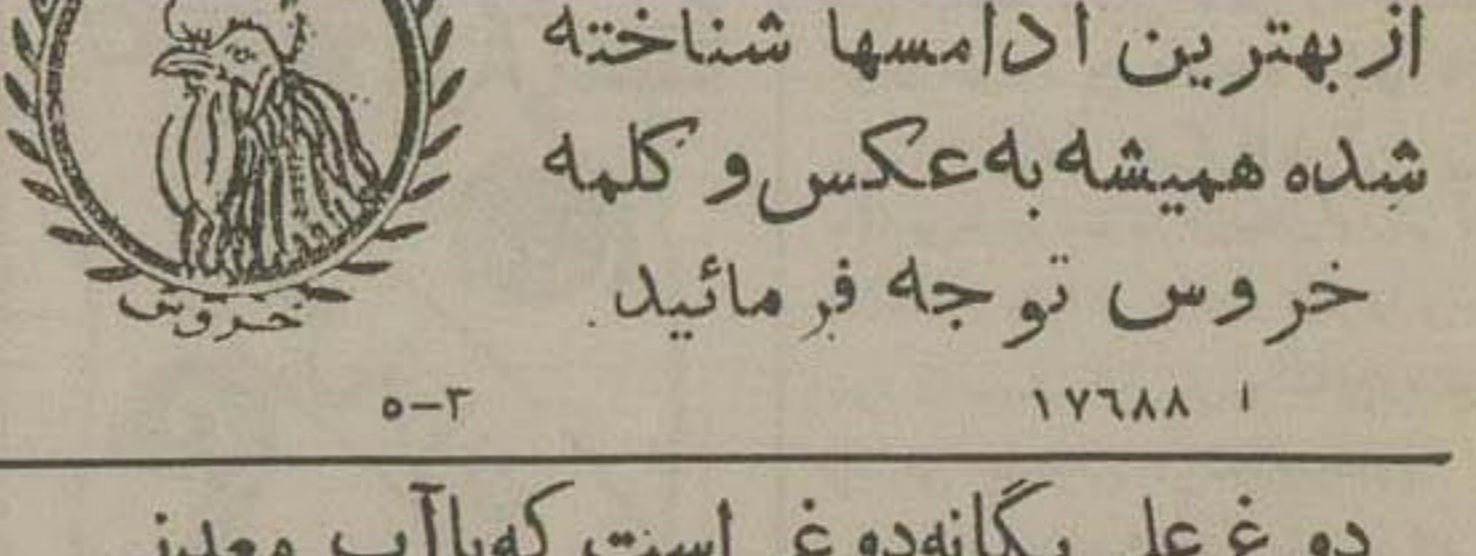 از بهترین ادامسها شناخته
شده همیشه به عکس و کلمه
خروس توجه فرمائید.
خروس
ا ۱۷٦۸۸
۳-۵
دوغ علی یگانه دوغی است که باآب معدنی